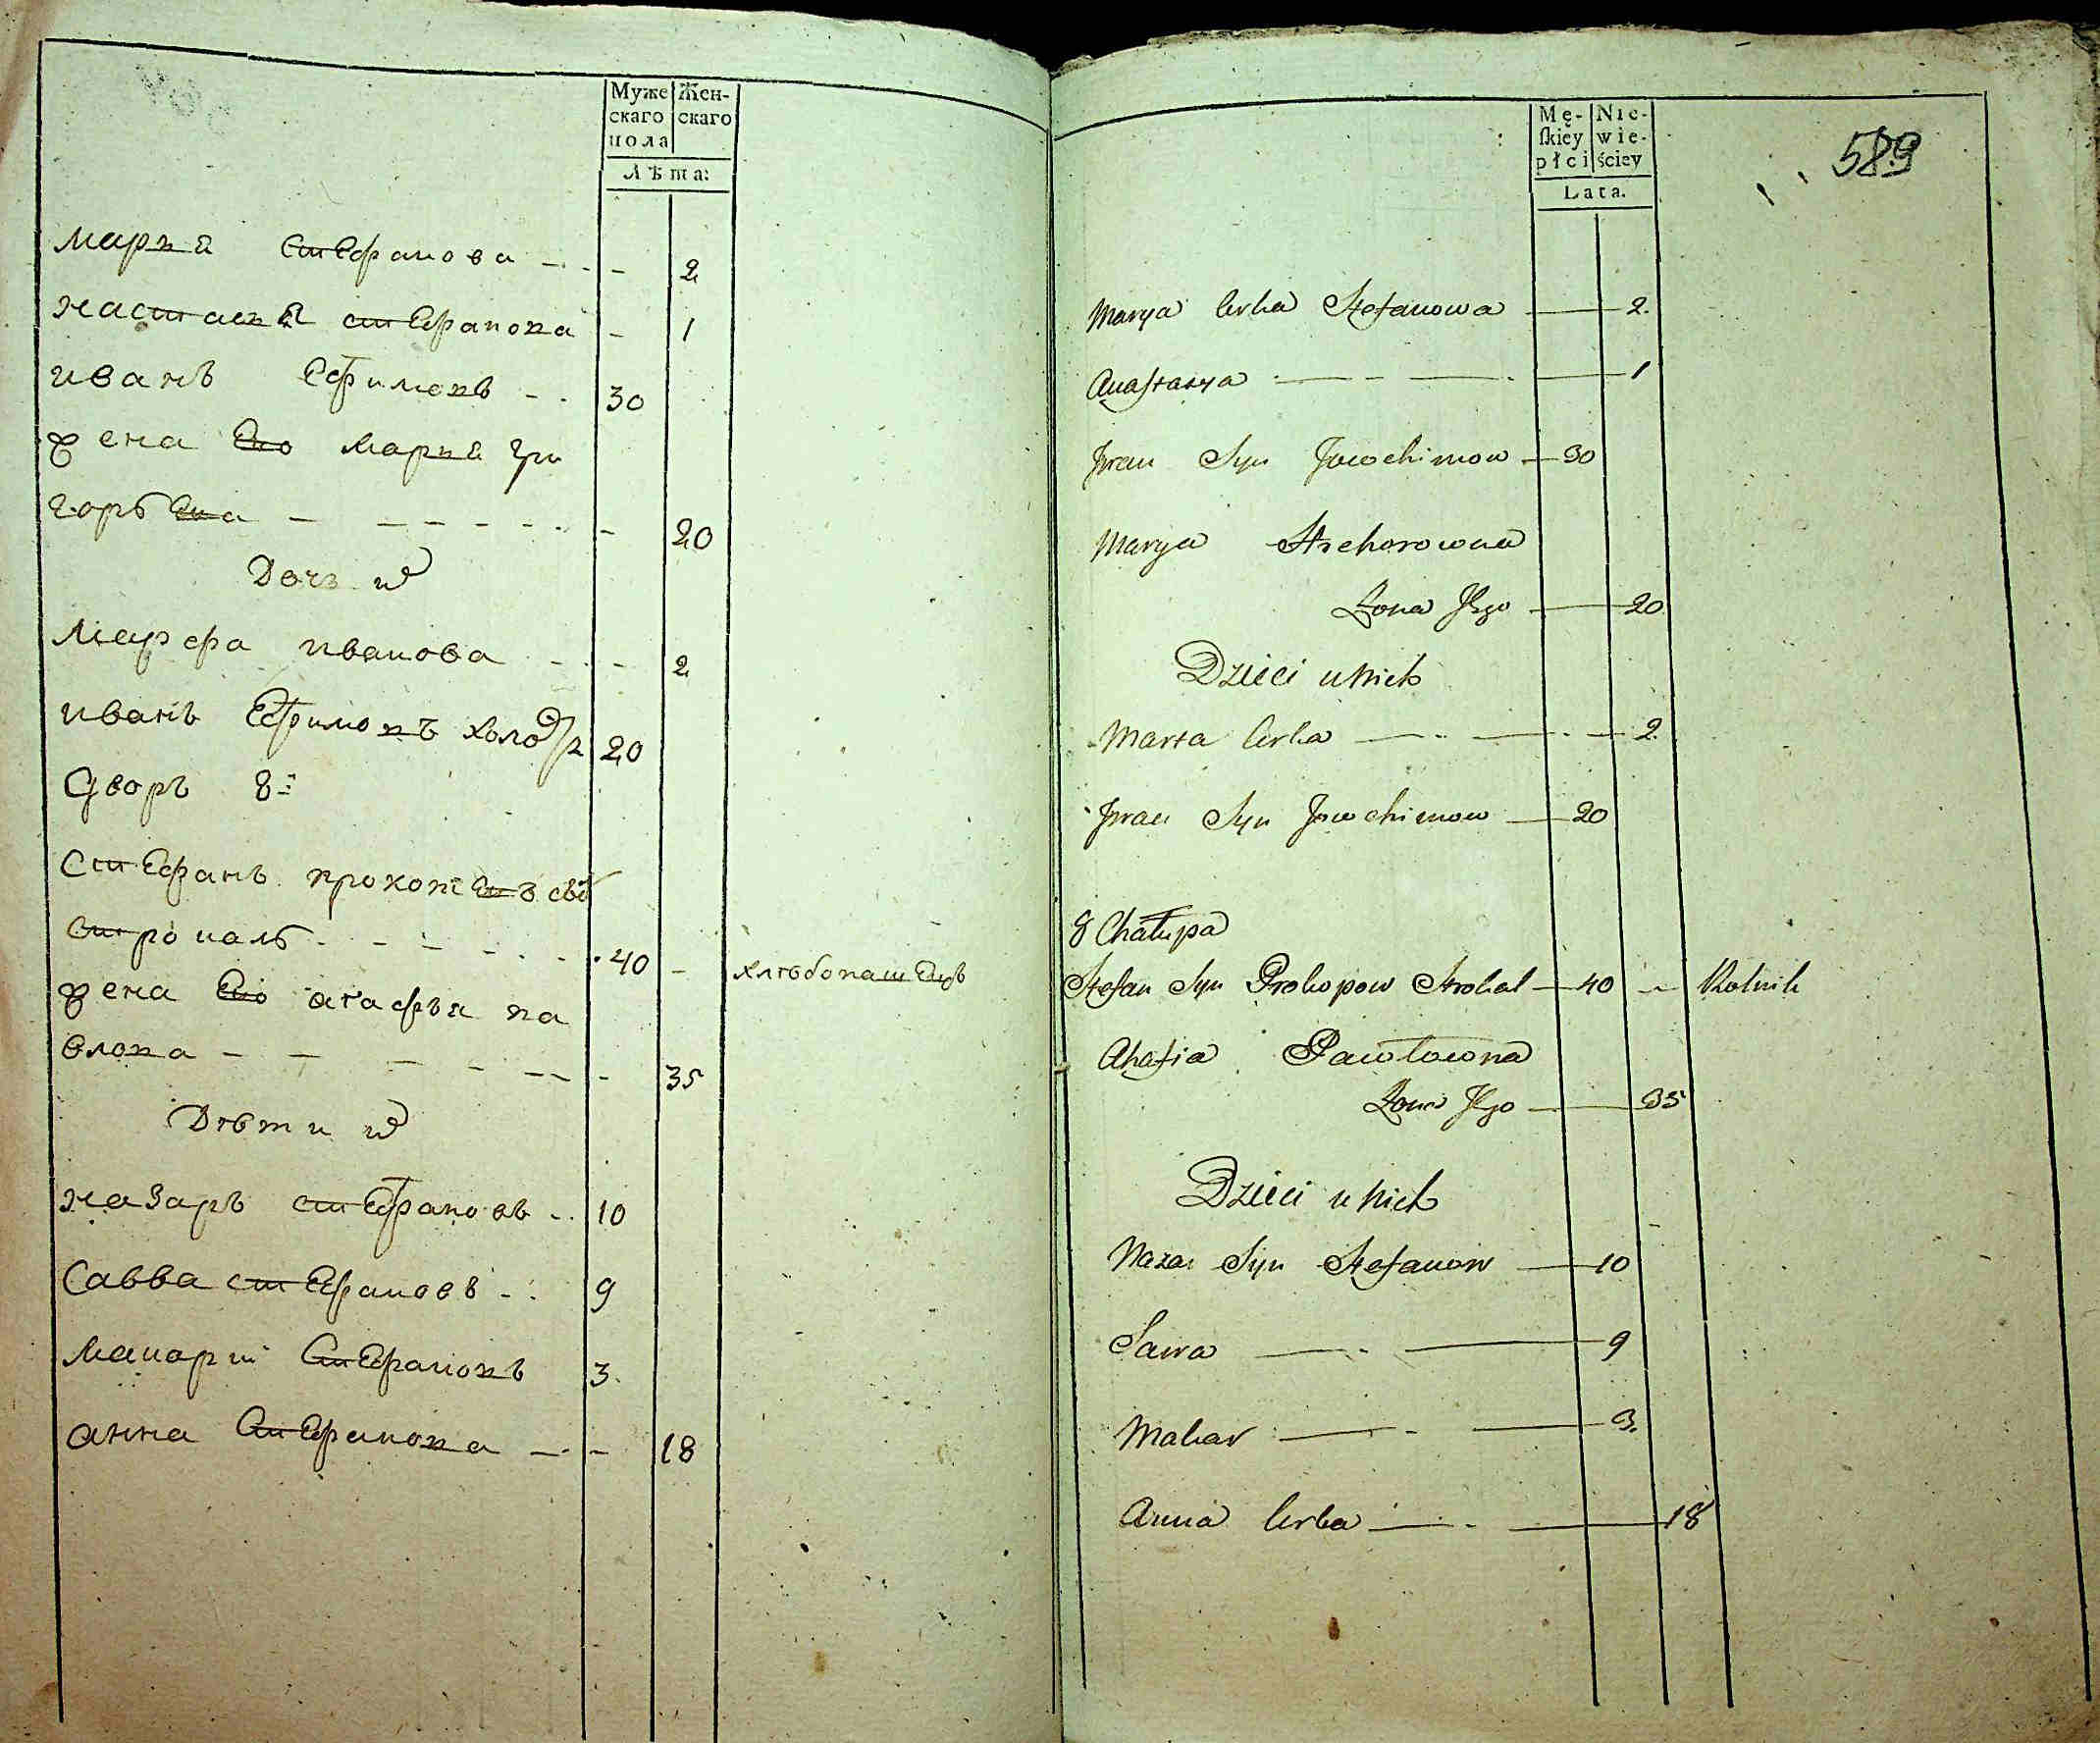 Муже Жен-
скаго скаго
пола
Лѣта:
Мария Стефанова - - - 2
Настасия Стефанова - 1
Иванъ Ефимовъ - - 30
Жена Его Мария Гри
горьева - - - - - - - 20
Дочь их
Марфа Иванова - - - 2
Иванъ Ефимовъ холо 20
Дворъ 8й
Стефанъ прокопиевъ
Строкаль - - - - - 40 - хлѣбопашецъ
Жена Его агафья па
влова - - - - - - 35
Дѣти их
Назаръ Стефановъ - 10
Савва Стефановъ - 9
Макарий Стефановъ 3
Анна Стефанова - - 18
Mę- Nie-
ſkiey wie-
płci ściey
Lata.
589
Marya Corka Stefanowa — 2.
Anastazya — — 1
Iwan Syn Jowchimow — 30
Marya Hrehorowna
Zona Jego — 20
Dzieci u nich
Marta Corka — — 2
Iwan Syn Jowchimow — 20
8 Chałupa
Stefan Syn Prokopow Strokal — 40 — Rolnik
Ahafia Pawłowna
Zona Jego — 35
Dzieci u nich
Nazar Syn Stefanow — 10
Sawa — — 9
Makar — — 3.
Anna Corka — — 18